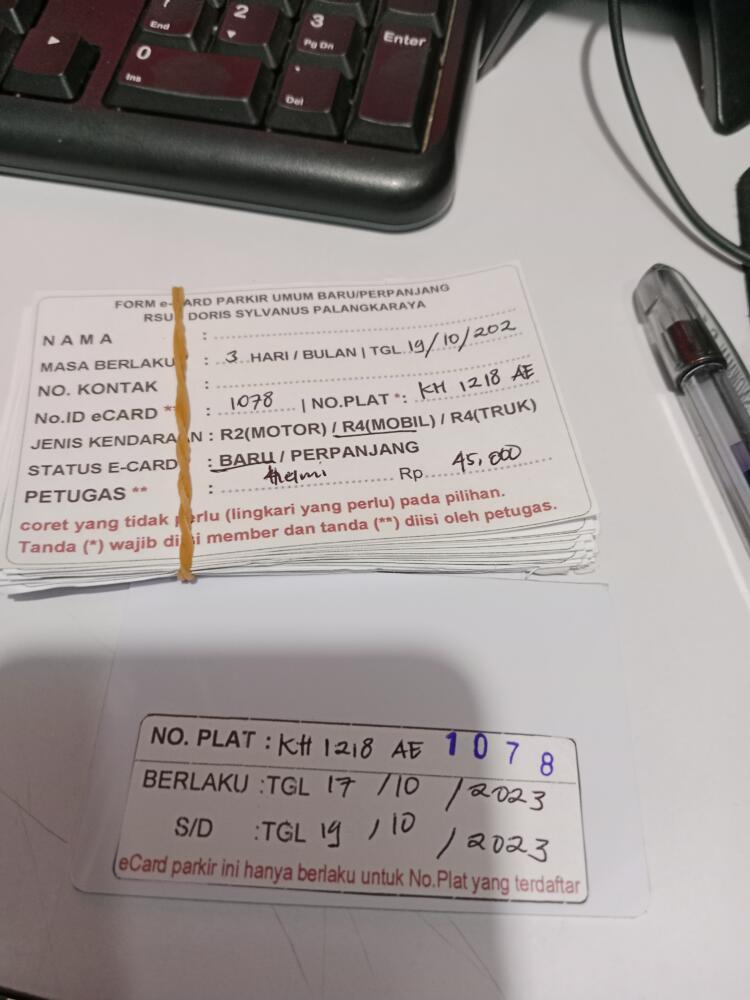 End
2
3
Pg Dn
Enter
0
Ins
.
Del
FORM e-CARD PARKIR UMUM BARU/PERPANJANG
RSU DORIS SYLVANUS PALANGKARAYA
NAMA :
MASA BERLAKU : 3 HARI / BULAN | TGL 19/10/202
NO. KONTAK :
No.ID eCARD ** : 1078 | NO.PLAT *: KH 1218 AE
JENIS KENDARAAN : R2(MOTOR) / R4(MOBIL) / R4(TRUK)
STATUS E-CARD : BARU / PERPANJANG
PETUGAS ** : Helmi Rp 45,000
coret yang tidak perlu (lingkari yang perlu) pada pilihan.
Tanda (*) wajib diisi member dan tanda (**) diisi oleh petugas.
NO. PLAT : KH 1218 AE 1078
BERLAKU :TGL 17 /10 /2023
S/D :TGL 19 /10 /2023
eCard parkir ini hanya berlaku untuk No.Plat yang terdaftar